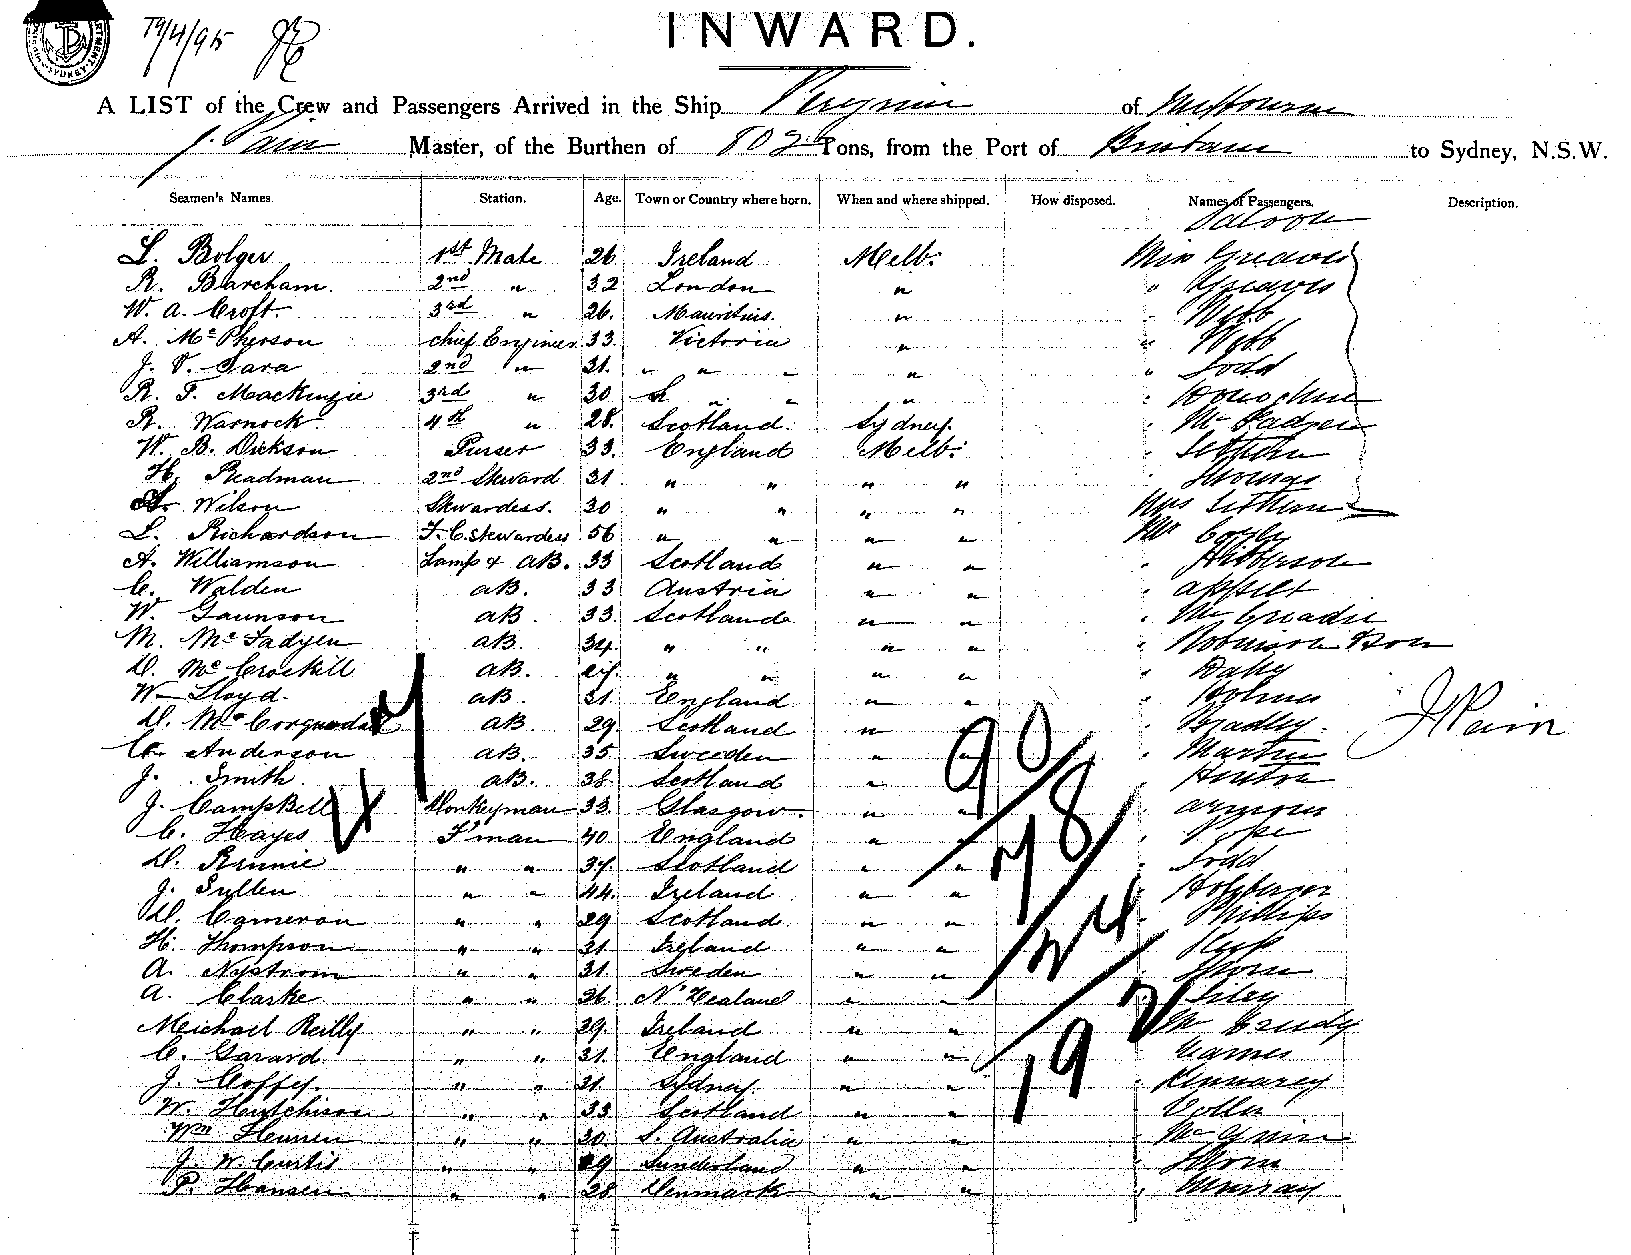 19/4/95
INWARD.
A LIST of the Crew and Passengers Arrived in the Ship of Melbourne
J. Pain Master, of the Burthen of Tons, from the Port of Brisbane to Sydney, N.S.W.
Seamen's Names. Station. Age. Town or Country where born. When and where shipped. How disposed. Names of Passengers. Description.
Saloon
L. Bolger 1st Mate 26 Ireland Melb: Miss Greaves
R. Barcham. 2nd " 32 London " " Greaves
W. A. Croft. 3rd " 26. Mauritius. " " Webb
A. McPherson chief Engineer 33. Victoria " " Webb
J. V. Gara 2nd " 31. " " " " " Todd
R. F. Mackenzie 3rd " 30 " " " " Donoghue
R. Warnock. 4th " 28. Scotland. Sydney. " McFadyen
W. B. Dickson Purser 33. England Melb:
H. Readman 2nd Steward 31 " " " "
Wilson Stewardess. 30 " " " " Mrs
L. Richardson F.C. Stewardess 56 " " " " Mr
A. Williamson Lamp & AB. 33 Scotland " "
C. Walden AB. 33 Austria " "
W. Gaunson AB. 33. Scotland " "
M. McFadyen AB. 34. " " " " " Robinson & Son
D. McCrockill AB. " " " "
Wm Lloyd. AB. 31 England " " " Holmes
D. McCorquodale AB 29. Scotland " " Bradley. J Pain
Anderson AB. 35 Sweeden " " " Martin
J. Smith. AB. 38. Scotland " "
J. Campbell Donkeyman 33. Glasgow. " " " Armour
C. Hayes F'man 40 England " " " Pope
D. Rennie " " 37. Scotland " " " Todd
J. Sullen " " 44. Ireland " "
D. Cameron " " 29 Scotland " " " Phillips
H. Thompson " " 31 Ireland " "
A. Nystrom " " 31. Sweden " " Thorn
A. Clarke " " 36 N' Zealand " "
Meichael Reilly " " 29. Ireland " "
C. Garard. " " 31. England " "
J. Coffey. " " 31. Sydney. " " "
W. Hutchison " " 33 Scotland " "
Wm " " 30. S. Australia " "
J. W. Curtis " " 29 Sunderland " "
P. Hansen " " 28 Denmark " " " Murray
90
78
24
192